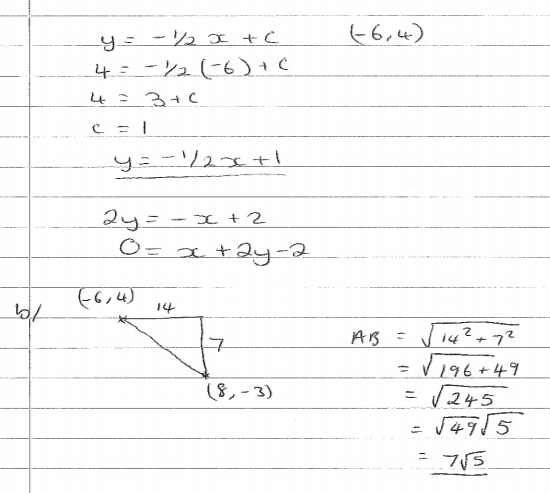 y = -1/2 x + c (-6,4)
4 = -1/2 (-6) + c
4 = 3 + c
c = 1
y = -1/2 x + 1
2y = -x + 2
0 = x + 2y - 2
b/ (-6,4) 14
7
(8,-3)
AB = √14² + 7²
= √196 + 49
= √245
= √49 √5
= 7√5